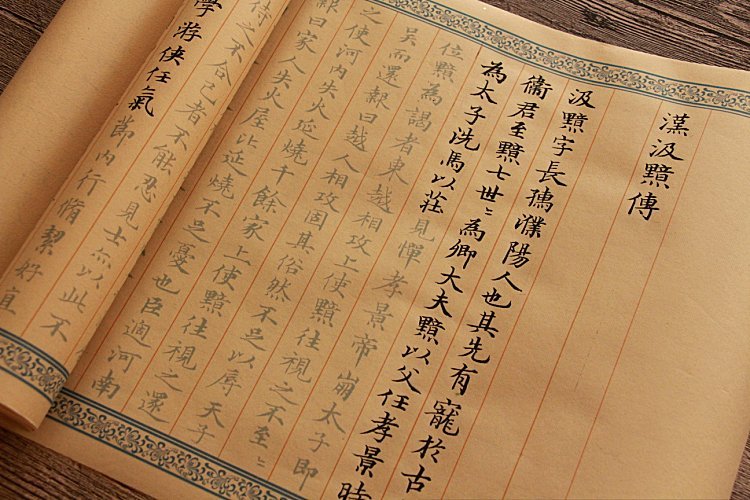 漢汲黯傳
汲黯字長孺濮陽人也其先有寵於古
衞君至黯七世〻為卿大夫黯以父任孝景時
為太子洗馬以莊見憚孝景帝崩太子即
位黯為謁者東越相攻上使黯往視之不至〻
吴而還報曰越人相攻固其俗然不足以辱天子
之使河内失火延燒千餘家上使黯往視之還
報曰家人失火屋比延燒不足憂也臣過河南
侍之不合己者不能忍見士亦以此不
學游俠任氣節内行脩絜好直